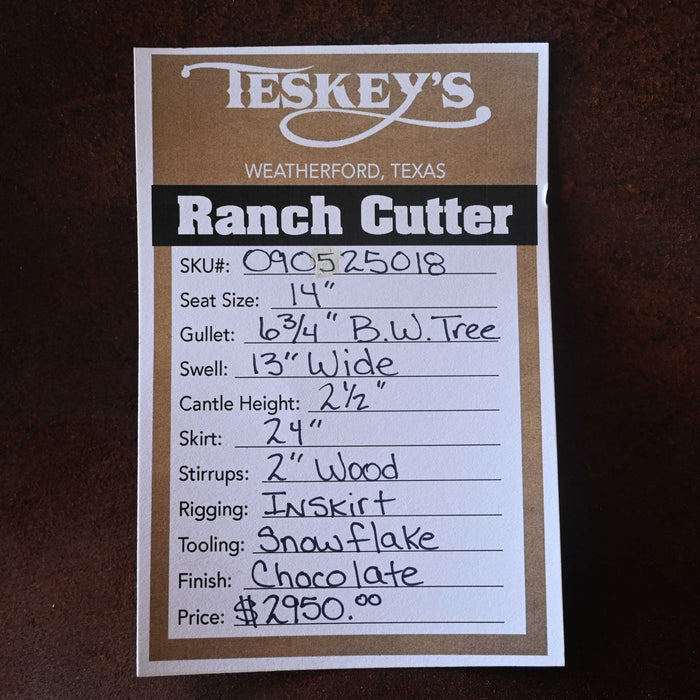 TESKEY'S
WEATHERFORD, TEXAS
Ranch Cutter
SKU#: 090525018
Seat Size: 14"
Gullet: 6 3/4" B.W. Tree
Swell: 13" Wide
Cantle Height: 2 1/2"
Skirt: 24"
Stirrups: 2" Wood
Rigging: INSkirt
Tooling: Snowflake
Finish: Chocolate
Price: $2950.00